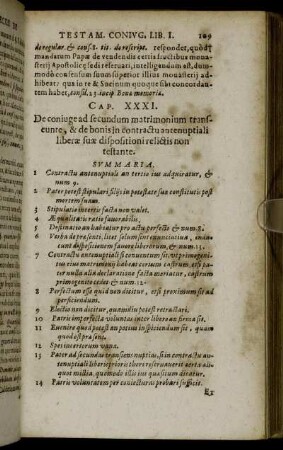 TESTAM. CONIVG. LIB. I. 129
de regular. & consf. tit. de rescript. respondet, quòd
mandatum Papæ de vendendis certis fructibus monasterij
Apostolicę sedi reservati, intelligendum est, dummodò
consensum suum superior illius monasterij adhibeat:
quia in re & Socinum quoque sibi concordantem
habet, consil. 23. incip. Bona memoria.
CAP. XXXI.
De coniuge ad secundum matrimonium transeunte,
& de bonis in contractu antenuptiali
liberæ suæ dispositioni relictis non
testante.
SVMMARIA.
1 Contractu antenuptiali an tertio ius adquiratur, &
num. 9.
2 Pater potest stipulari filijs in potestate sua constitutis post
mortem suam.
3 Stipulatio inter eos facta non valet.
4 Æqualitatis ratio favorabilis.
5 Destinatio an habeatur pro actu perfecto & num. 8.
6 Verba de præsenti, licet solùm sint enunciativa, inducunt
dispositionem favore liberorum, & num. 13.
7 Contractu antenuptiali si conventum sit, ut primogenitus
eius matrimonij habeat domum castrum, etsi pater
nulla alia declaratione facta moriatur, castrum
primogenito cedere & num. 12.
8 Perfectum esse quid non dicitur, etsi proximum sit ad
perficiendum.
9 Electio non dicitur, quamdiu potest retractari.
10 Patris imperfecta voluntas inter liberos tenet.
11 Evenire quod potest an potius inspiciendum sit, quàm
quod est præsens.
12 Spes incertorum vana.
13 Pater ad secundas transiens nuptias, si in contractu antenuptiali
liberis prioris thori reservaverit certa aliquot
millia, quomodo istis ius quæsitum dicatur.
14 Patris voluntatem per coniecturas probari sufficit.
Ex